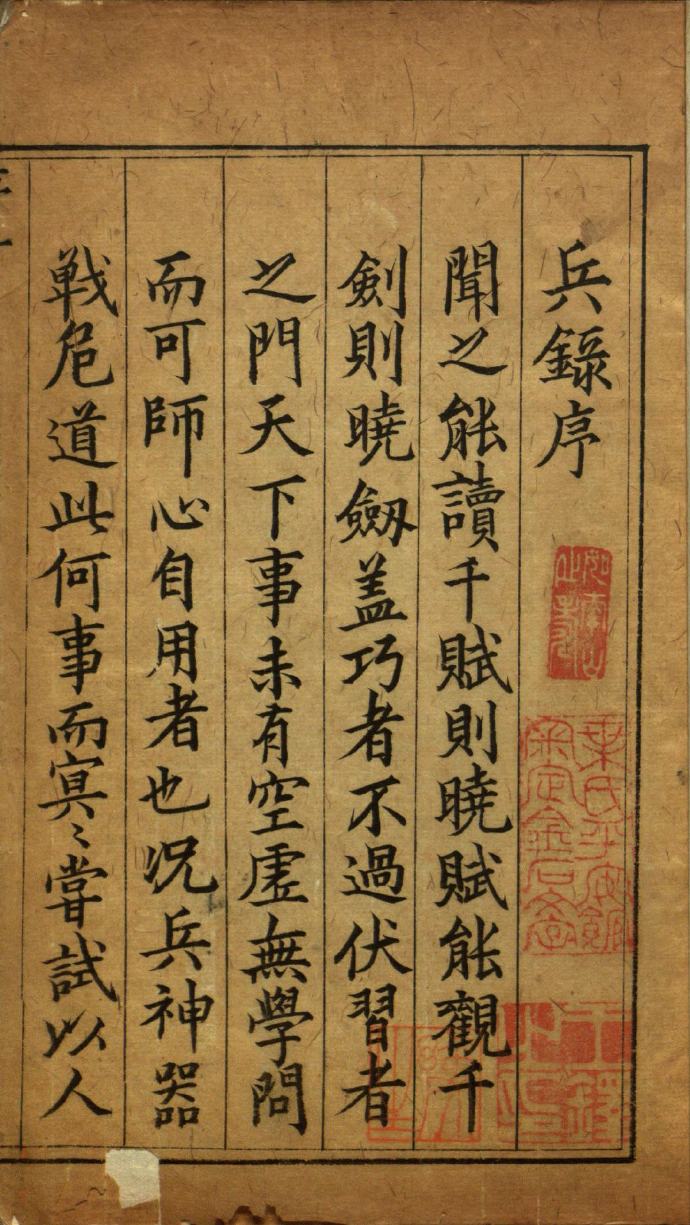 兵錄序
聞之能讀千賦則曉賦能觀千
劍則曉劒盖巧者不過伏習者
之門天下事未有空虛無學問
而可師心自用者也況兵神器
戰危道此何事而寘〻嘗試以人